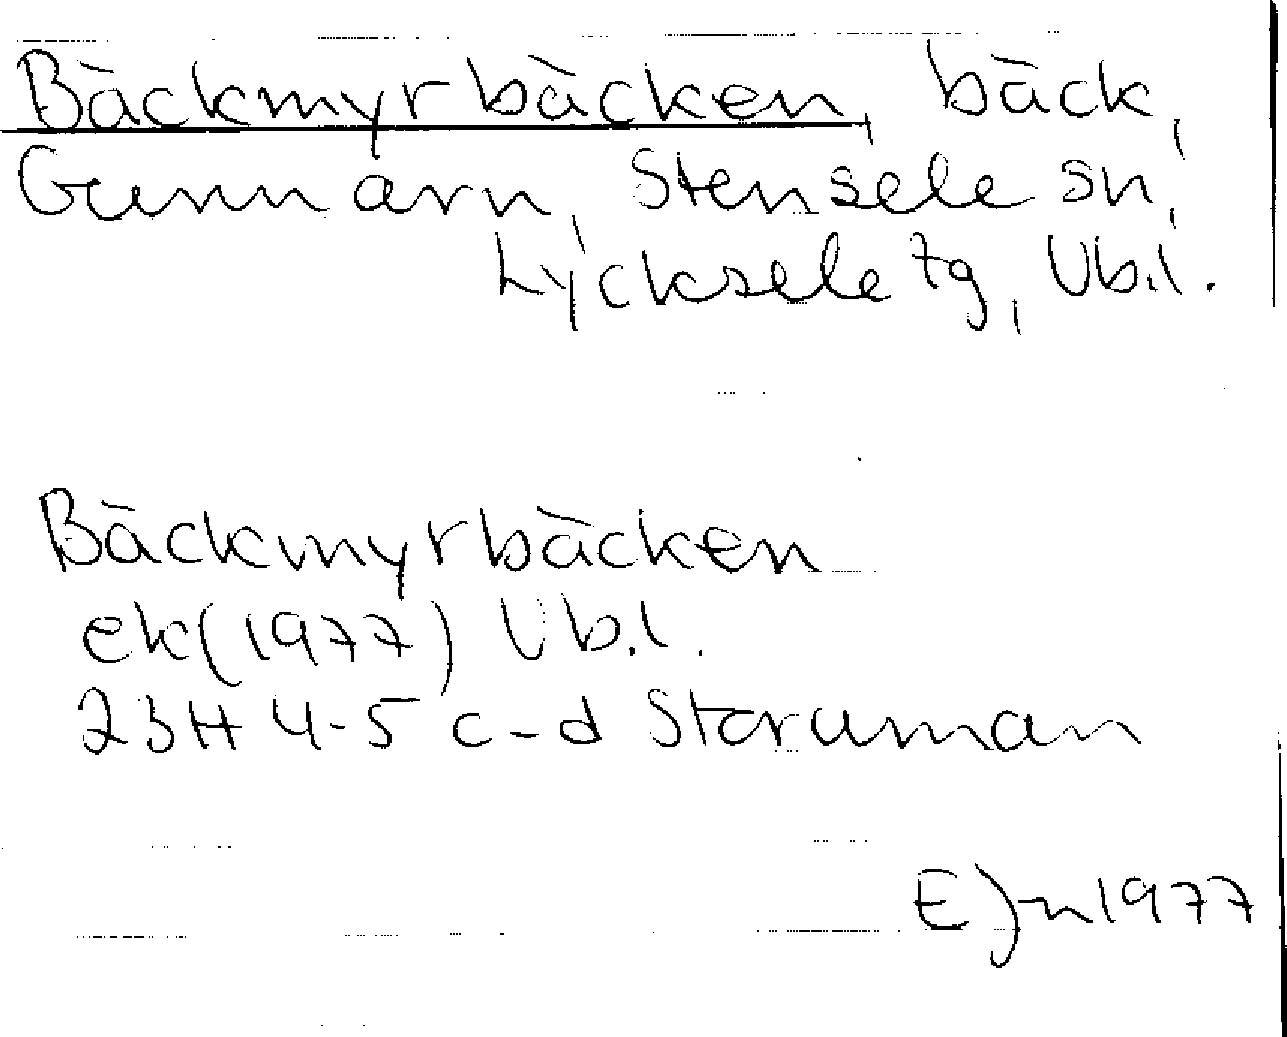 Bäckmyrbäcken, bäck,
Gunnarn, Stensele sn,
Lycksele tg, Vb.l.
Bäckmyrbäcken
ek(1977) Vb.l.
23H 4-5 c-d Storuman
EJn 1977